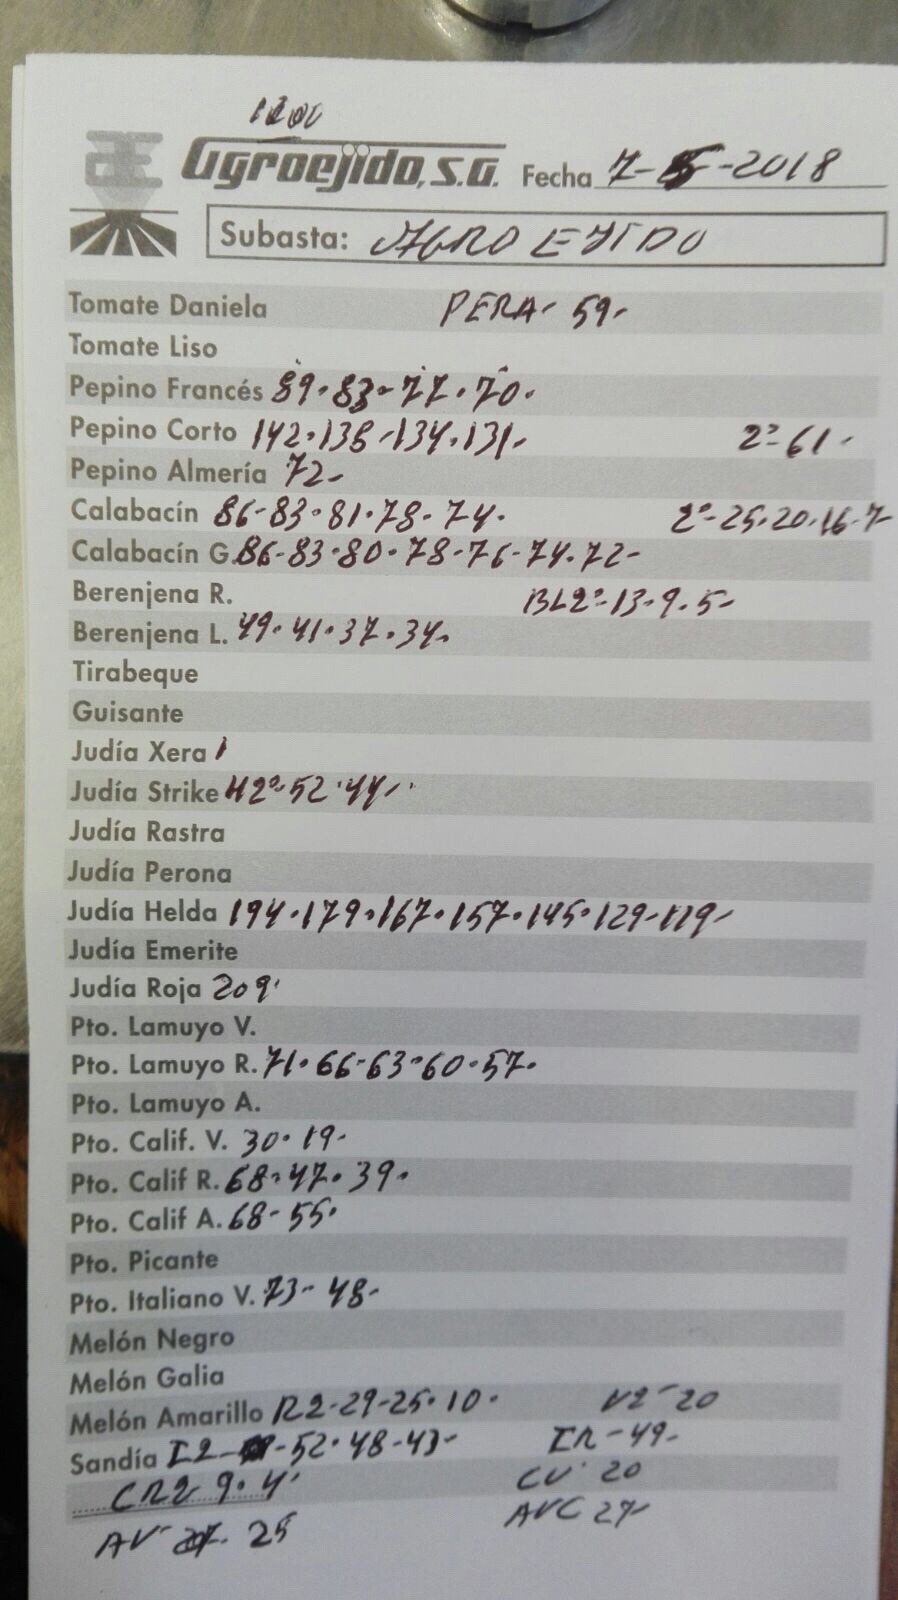 1200
Agroejido, S.A. Fecha 7-5-2018
Subasta: AGRO EJIDO
Tomate Daniela PERA- 59-
Tomate Liso
Pepino Francés 89-83-77-70.
Pepino Corto 142.138-134.131- 2ª-61-
Pepino Almería 72-
Calabacín 86-83.81.78-74. 2ª-25.20.16.7-
Calabacín G. 86-83.80.78-76-74.72-
Berenjena R. BL2ª-13.9.5-
Berenjena L. 49.41.37.34.
Tirabeque
Guisante
Judía Xera
Judía Strike H2ª-52.44-
Judía Rastra
Judía Perona
Judía Helda 194.179.167.157.145.129-119-
Judía Emerite
Judía Roja 209
Pto. Lamuyo V.
Pto. Lamuyo R. 71.66-63-60.57.
Pto. Lamuyo A.
Pto. Calif. V. 30.19-
Pto. Calif R. 68-47.39.
Pto. Calif A. 68-55.
Pto. Picante
Pto. Italiano V. 73-48-
Melón Negro
Melón Galia
Melón Amarillo R2-29-25.10. V2-20
Sandía I2 -52.48-43- IR-49-
CR2 9.4 CV 20
AV 25 AVC 27-